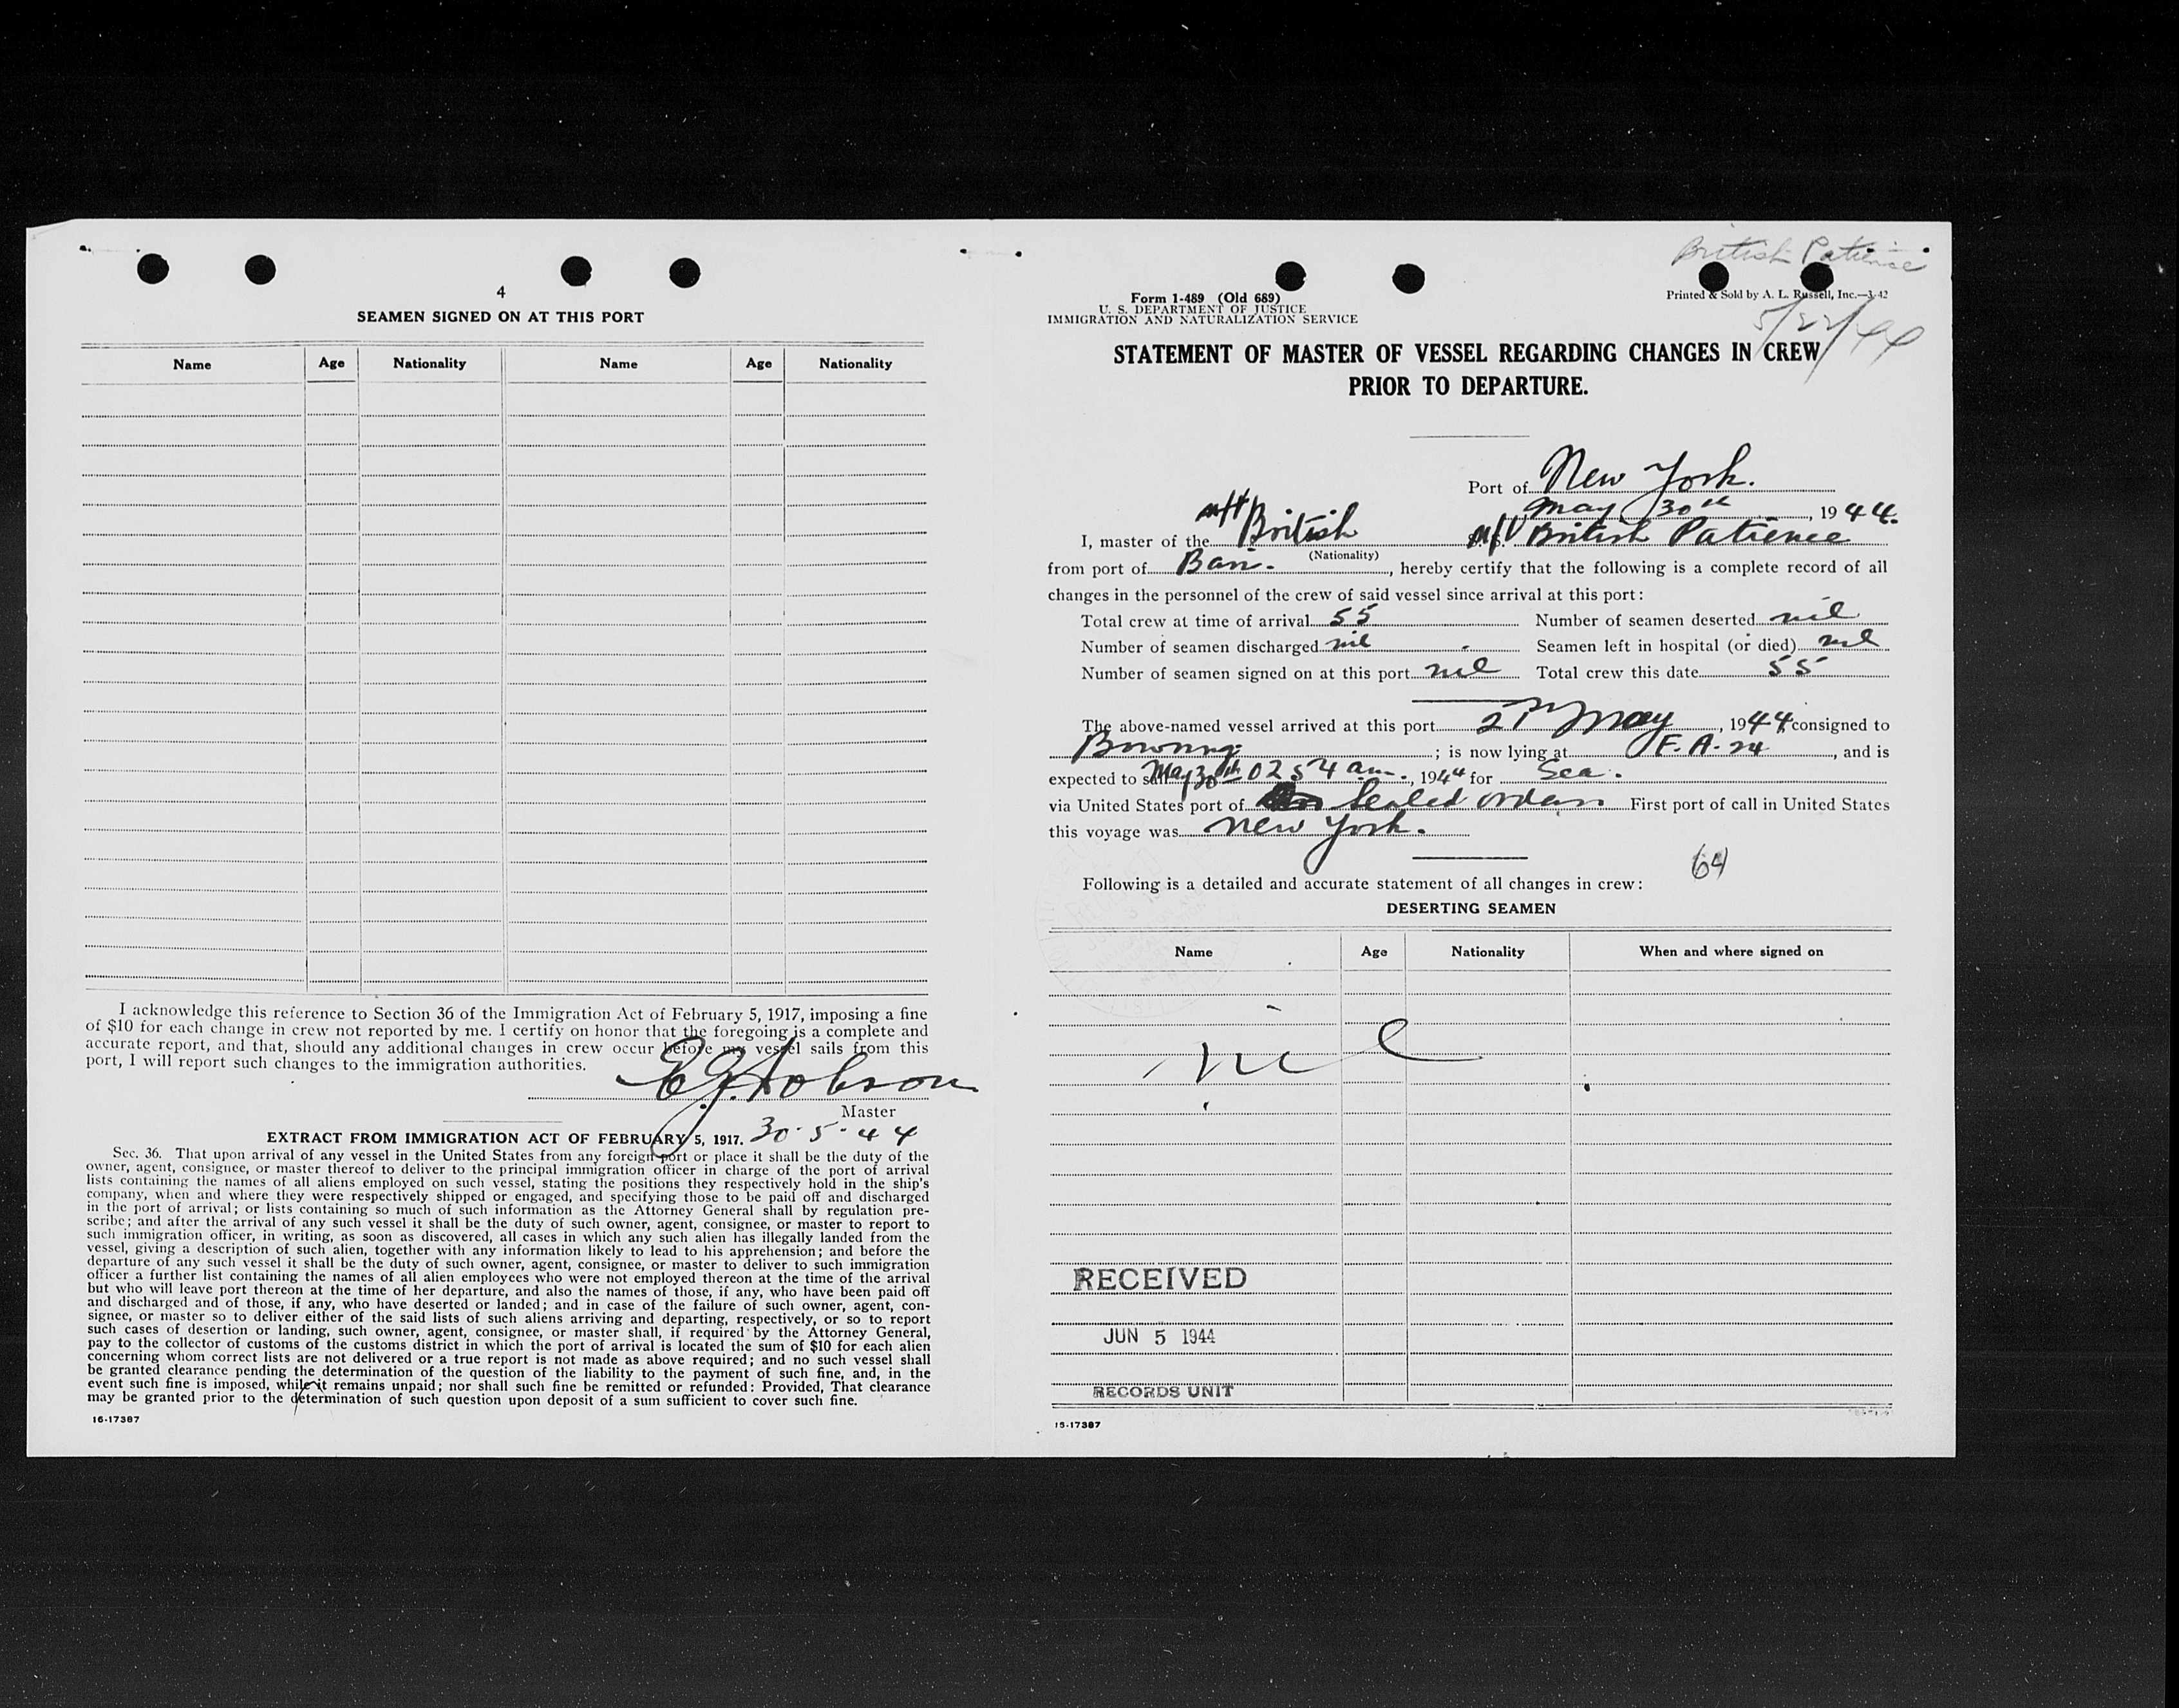 4
SEAMEN SIGNED ON AT THIS PORT
Name Age Nationality Name Age Nationality
I acknowledge this reference to Section 36 of the Immigration Act of February 5, 1917, imposing a fine
of $10 for each change in crew not reported by me. I certify on honor that the foregoing is a complete and
accurate report, and that, should any additional changes in crew occur before my vessel sails from this
port, I will report such changes to the immigration authorities.
Master
EXTRACT FROM IMMIGRATION ACT OF FEBRUARY 5, 1917. 30.5.44
Sec. 36. That upon arrival of any vessel in the United States from any foreign port or place it shall be the duty of the
owner, agent, consignee, or master thereof to deliver to the principal immigration officer in charge of the port of arrival
lists containing the names of all aliens employed on such vessel, stating the positions they respectively hold in the ship's
company, when and where they were respectively shipped or engaged, and specifying those to be paid off and discharged
in the port of arrival; or lists containing so much of such information as the Attorney General shall by regulation pre-
scribe; and after the arrival of any such vessel it shall be the duty of such owner, agent, consignee, or master to report to
such immigration officer, in writing, as soon as discovered, all cases in which any such alien has illegally landed from the
vessel, giving a description of such alien, together with any information likely to lead to his apprehension; and before the
departure of any such vessel it shall be the duty of such owner, agent, consignee, or master to deliver to such immigration
officer a further list containing the names of all alien employees who were not employed thereon at the time of the arrival
but who will leave port thereon at the time of her departure, and also the names of those, if any, who have been paid off
and discharged and of those, if any, who have deserted or landed; and in case of the failure of such owner, agent, con-
signee, or master so to deliver either of the said lists of such aliens arriving and departing, respectively, or so to report
such cases of desertion or landing, such owner, agent, consignee, or master shall, if required by the Attorney General,
pay to the collector of customs of the customs district in which the port of arrival is located the sum of $10 for each alien
concerning whom correct lists are not delivered or a true report is not made as above required; and no such vessel shall
be granted clearance pending the determination of the question of the liability to the payment of such fine, and, in the
event such fine is imposed, while it remains unpaid; nor shall such fine be remitted or refunded: Provided, That clearance
may be granted prior to the determination of such question upon deposit of a sum sufficient to cover such fine.
16-17387
British Patience
Form 1-489 (Old 689)
U. S. DEPARTMENT OF JUSTICE
IMMIGRATION AND NATURALIZATION SERVICE
Printed & Sold by A. L. Russell, Inc.—3-42
5/22/44
STATEMENT OF MASTER OF VESSEL REGARDING CHANGES IN CREW
PRIOR TO DEPARTURE.
Port of New York.
May 30th, 1944.
I, master of the British M/V British Patience
(Nationality)
from port of , hereby certify that the following is a complete record of all
changes in the personnel of the crew of said vessel since arrival at this port:
Total crew at time of arrival 55 Number of seamen deserted nil
Number of seamen discharged nil Seamen left in hospital (or died) nil
Number of seamen signed on at this port nil Total crew this date 55
The above-named vessel arrived at this port May, 1944 consigned to
; is now lying at F.A. 24, and is
expected to sail May 30th 0254 am., 1944 for Sea.
via United States port of Sealed orders First port of call in United States
this voyage was New York.
64
Following is a detailed and accurate statement of all changes in crew:
DESERTING SEAMEN
Name Age Nationality When and where signed on
nil
RECEIVED
JUN 5 1944
RECORDS UNIT
16-17387